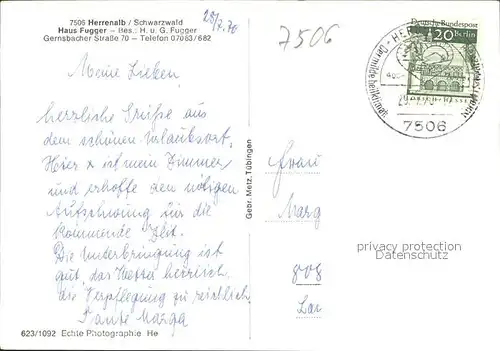 7506 Herrenalb / Schwarzwald
Haus Fugger – Bes.: H. u. G. Fugger
Gernsbacher Straße 70 – Telefon 07083/682
28/7.70
7506
Deutsche Bundespost
20 Berlin
LORSCH/HESSEN
7506
Meine Lieben,
herzliche Grüße aus
dem schönen Urlaubsort.
Hier x ist mein Zimmer
und erhoffe den nötigen
Aufschwung für die
kommende Zeit.
Die Unterbringung ist
gut, das Wetter herrlich,
die Verpflegung zu reichlich.
Tante Marga
Gebr. Metz, Tübingen
Frau
Marg
808
privacy protection
Datenschutz
623/1092 Echte Photographie He